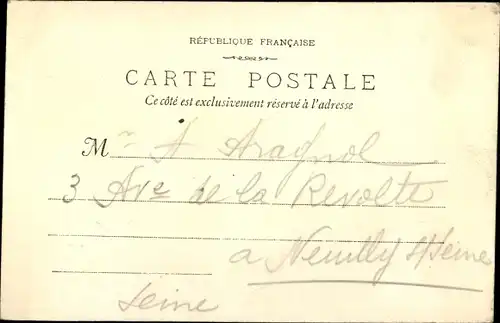 RÉPUBLIQUE FRANÇAISE
CARTE POSTALE
Ce côté est exclusivement réservé à l'adresse
Mr A Aragnol
3 Ave de la Revolte
a Neuilly s/Seine
Seine